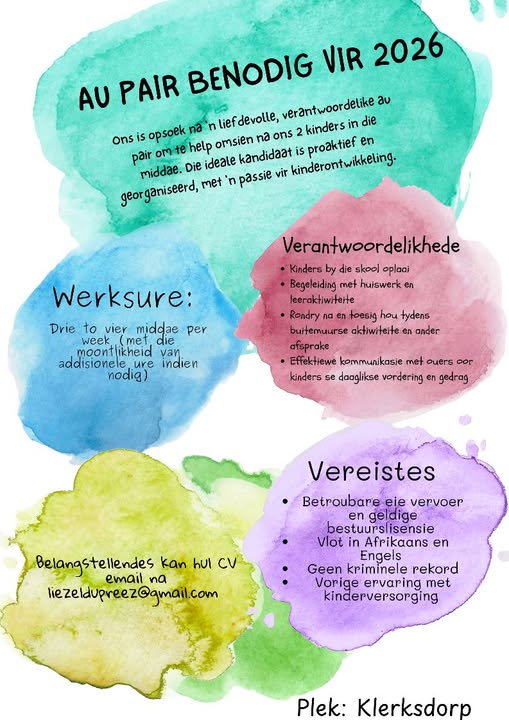 AU PAIR BENODIG VIR 2026
Ons is opsoek na 'n liefdevolle, verantwoordelike au
pair om te help omsien na ons 2 kinders in die
middae. Die ideale kandidaat is proaktief en
georganiseerd, met 'n passie vir kinderontwikkeling.
Werksure:
Drie to vier middae per
week (met die
moontlikheid van
addisionele ure indien
nodig)
Verantwoordelikhede
• Kinders by die skool oplaai
• Begeleiding met huiswerk en
leeraktiwiteite
• Rondry na en toesig hou tydens
buitemuurse aktiwiteite en ander
afsprake
• Effektiewe kommunikasie met ouers oor
kinders se daaglikse vordering en gedrag
Vereistes
• Betroubare eie vervoer
en geldige
bestuurslisensie
• Vlot in Afrikaans en
Engels
• Geen kriminele rekord
• Vorige ervaring met
kinderversorging
Belangstellendes kan hul CV
email na
liezeldupreez@gmail.com
Plek: Klerksdorp